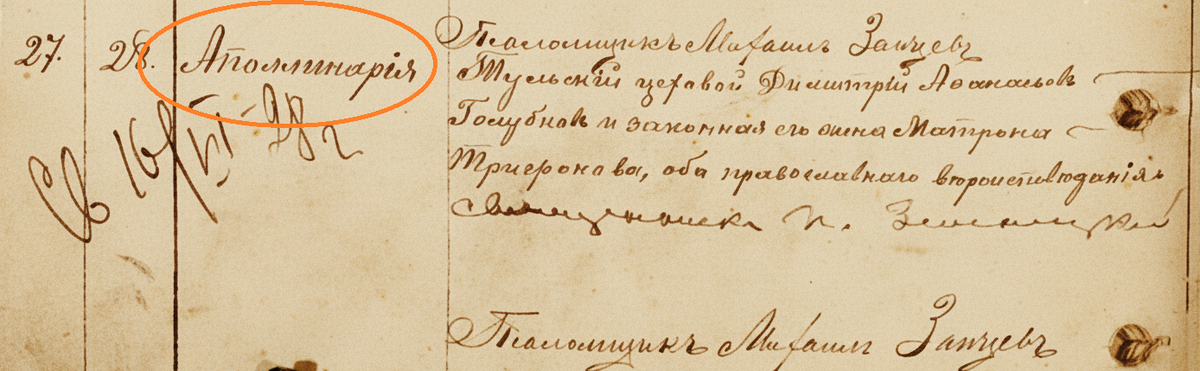 27. 28. Аполлинарія
Св 16/VI-28 г
Псаломщикъ Михаилъ Зайцевъ
Тульскій цеховой Димитрій Аѳанасьевъ
Голубковъ и законная его жена Матрона
Триѳонова, оба православнаго вѣроисповѣданія.
Священникъ П.
Псаломщикъ Михаилъ Зайцевъ